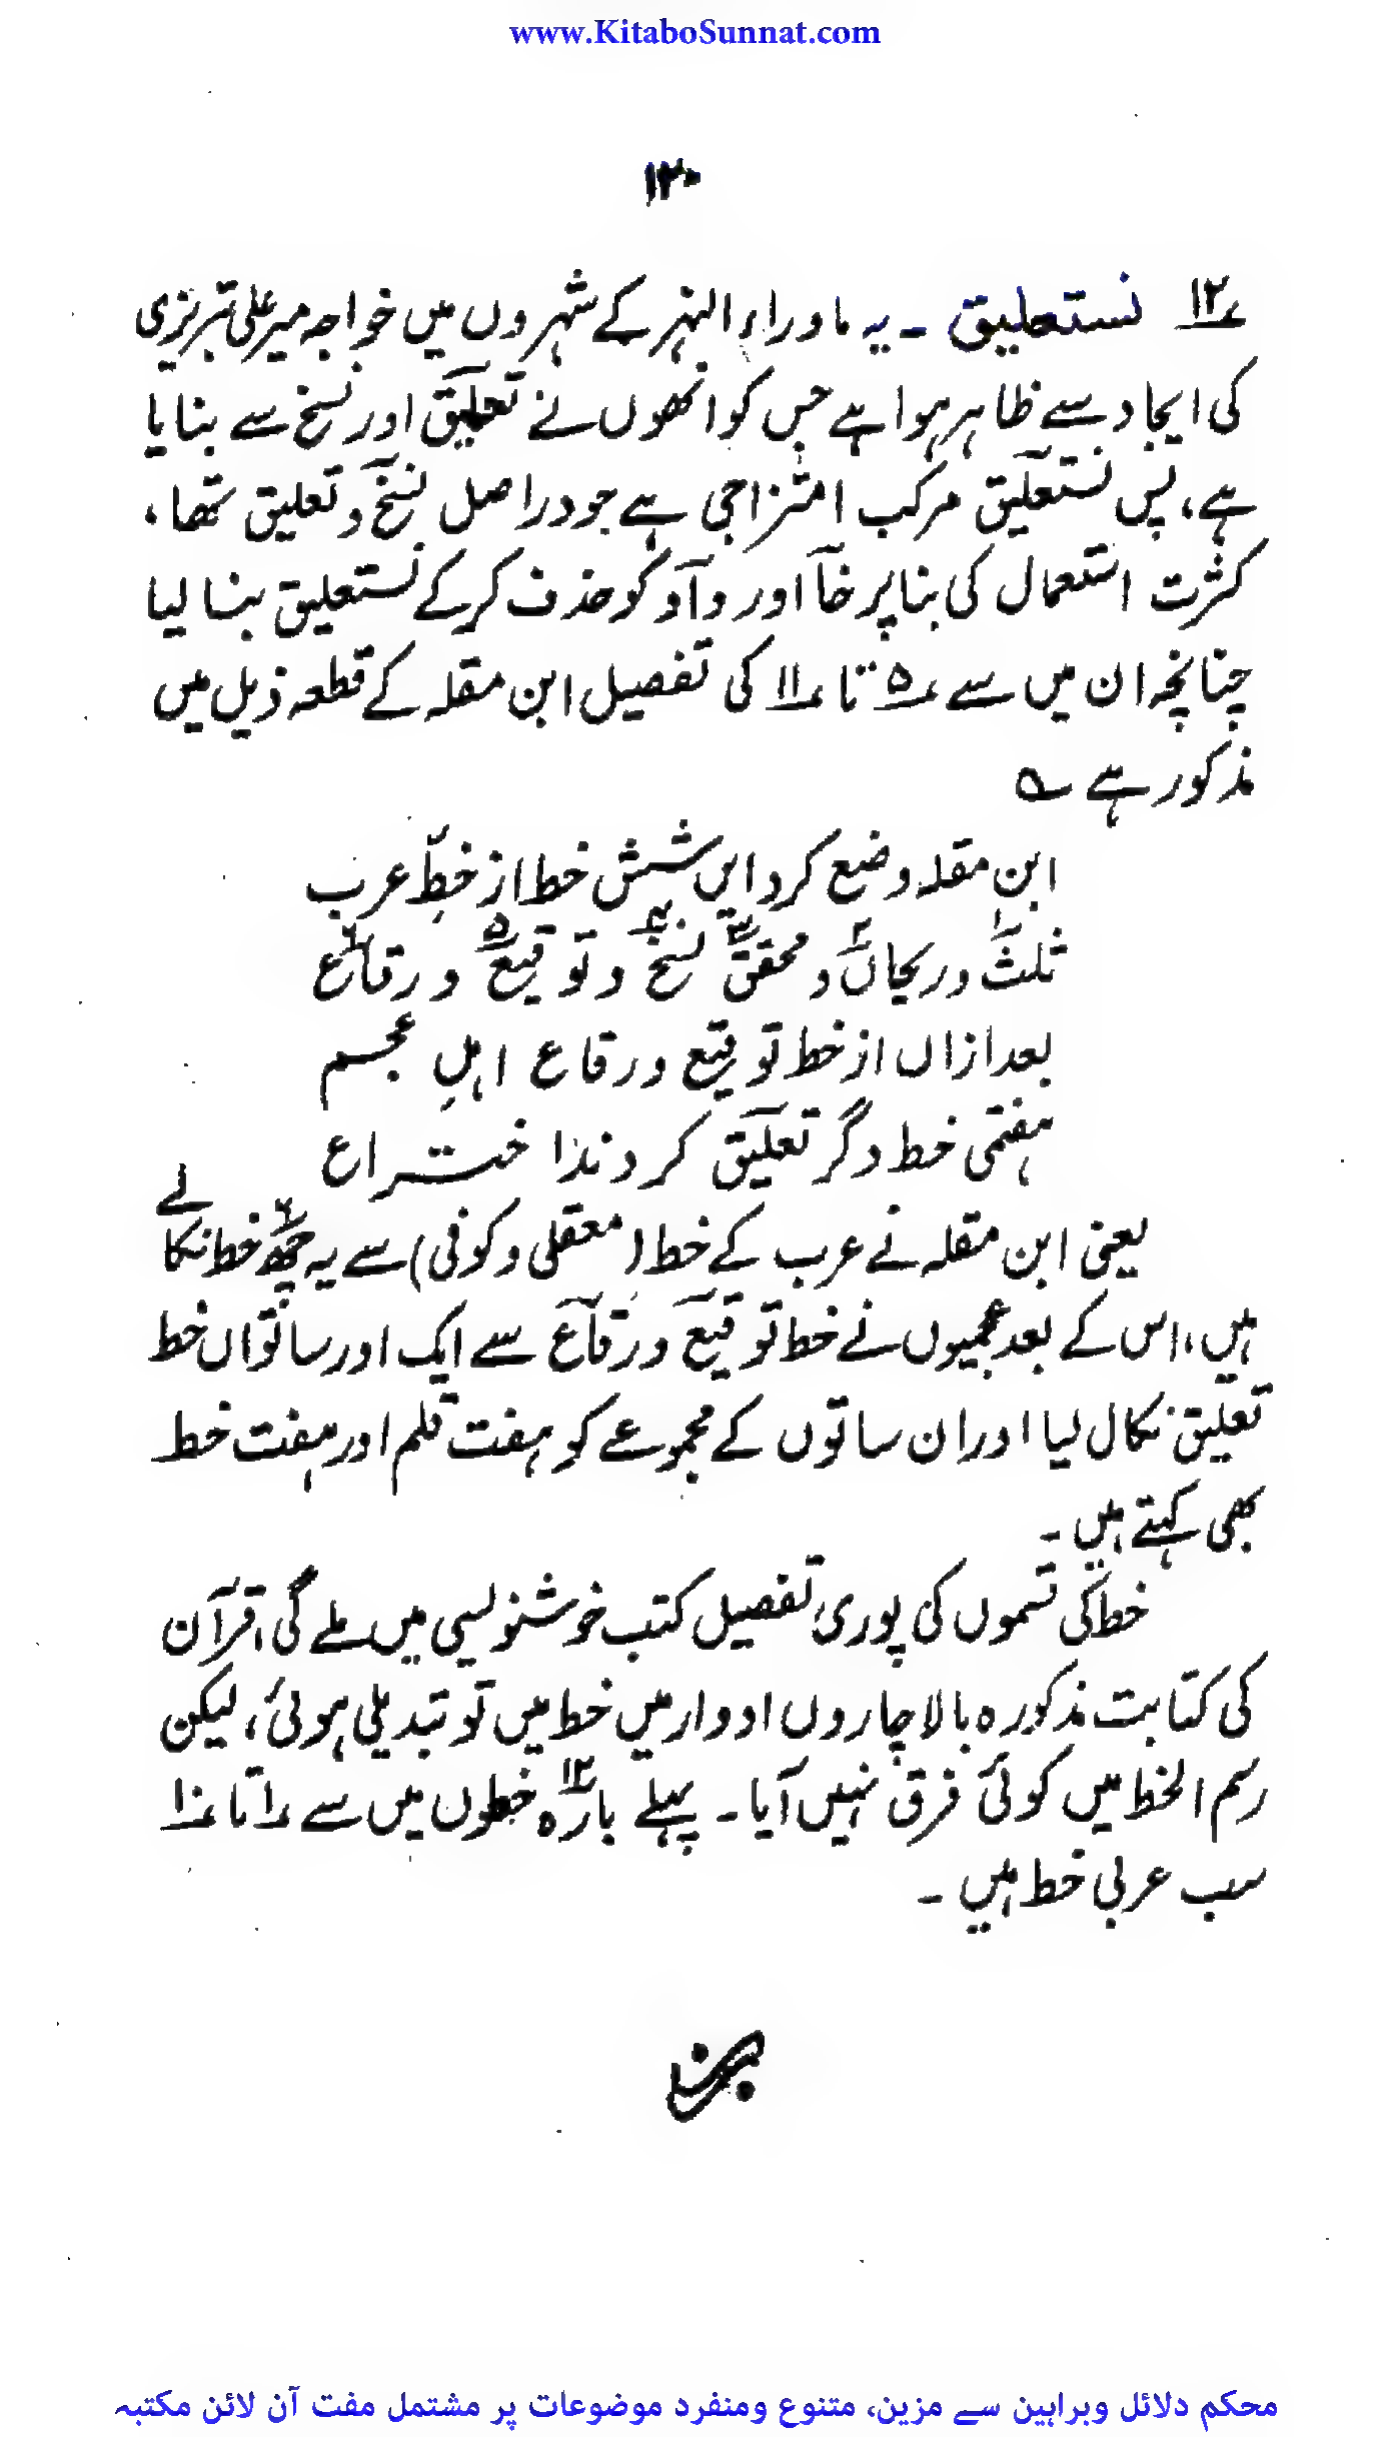 www.KitaboSunnat.com
۱۲۰
۱۲؍ نستعلیق ۔ یہ ماوراء النہر کے شہروں میں خواجہ میر علی تبریزی
کی ایجاد سے ظاہر ہوا ہے جس کو انھوں نے تعلیق اور نسخ سے بنایا
ہے، پس نستعلیق مرکب امتزاجی ہے جو دراصل نسخ و تعلیق تھا،
کثرت استعمال کی بنا پر خا اور واو کو حذف کر کے نستعلیق بنا لیا
چنانچہ ان میں سے ۵؍ تا ۱۱؍ کی تفصیل ابن مقلہ کے قطعہ ذیل میں
مذکور ہے ؎
ابن مقلہ وضع کرد ایں شش خط از خطِّ عرب
ثلث۱ و ریحاں۲ و محقق۳ نسخ۴ و توقیع۵ و رقاع۶
بعد ازاں از خط توقیع و رقاع اہلِ عجم
ہفتمی خط دگر تعلیق کردند اختراع
یعنی ابن مقلہ نے عرب کے خط (معقلی و کوفی) سے یہ چھ۶ خط نکالے
ہیں، اس کے بعد عجمیوں نے خط توقیع و رقاع سے ایک اور ساتواں خط
تعلیق نکال لیا اور ان ساتوں کے مجموعے کو ہفت قلم اور ہفت خط
بھی کہتے ہیں۔
خط کی قسموں کی پوری تفصیل کتب خوشنویسی میں ملے گی، قرآن
کی کتابت مذکورہ بالا چاروں ادوار میں خط میں تو تبدیلی ہوئی، لیکن
رسم الخط میں کوئی فرق نہیں آیا۔ پہلے بارہ۱۲ خطوں میں سے ۱؍ تا ۱۰؍
سب عربی خط ہیں۔
محکم دلائل وبراہین سے مزین، متنوع ومنفرد موضوعات پر مشتمل مفت آن لائن مکتبہ